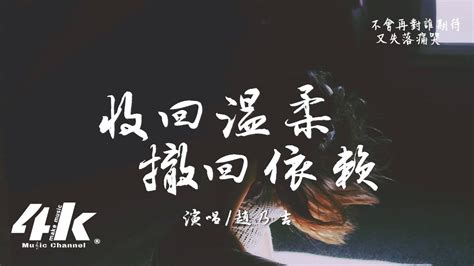 不會再對誰期待
又失落痛哭
收回溫柔
撤回依賴
演唱/趙乃吉
4k
Music Channel